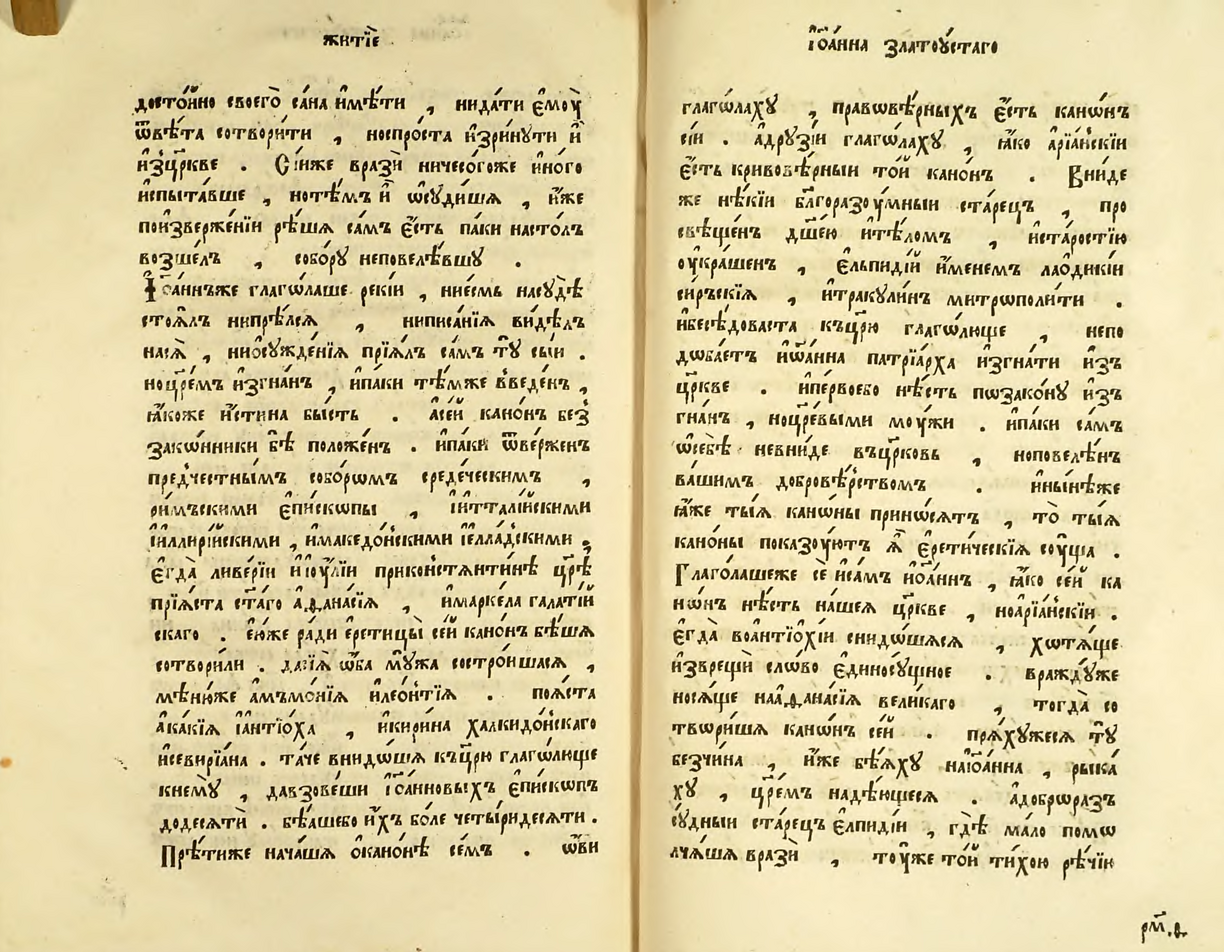 житїѐ
досто́йно своегѡ̀ са́на и҆мѣ́ти , нида́ти є҆моу̀
ѿвѣ́та сотвори́ти , носпроста и҆зри́нути и҆̀
и҆зцр҃кве . Сі́иже вразѝ ничесо́гоже и҆́ного
и҆спыта́вше , нотѣ́мъ и҆̀ ѡ҆суди́шѧ , и҆́же
поизверже́нїи рѣ́шѧ са́мъ є҆́сть па́ки насто́лъ
возше́лъ , собо́ру неповелѣ́вшу .
І҆ѡа́ннъже глаго́лаше рекі́и , ние́смь насу́дѣ̀
стоѧ́лъ нипрѣ́лсѧ , ниписа́нїѧ ви́дѣлъ
насѧ̀ , нио҆сужде́нїѧ прїѧ́лъ са́мъ тꙋ̀ сы́и .
ноцр҃е́мъ и҆згна́н , и҆па́ки тѣ́мже введе́нъ ,
ꙗ҆́коже и҆́стина бы́сть . а҆се́й кано́нъ без̾
зако́нники бѣ̀ положе́н . и҆па́ки ѿве́рженъ
пред̾че́стнымъ собо́рѡмъ среде́ческимъ ,
ри́мъскими є҆пи́скѡпы , і҆итталі́йскими
і҆иллирі́йскими , и҆македо́нскими і҆елла́дскими .
є҆гда̀ ливе́рїи и҆и҆ꙋ́лїи приконстѧнти́нѣ цр҃ѣ̀
прїѧ́ста ст҃а́го а҆ѳана́сїѧ , и҆марке́ла галаті́й
скаго . є҆ѧ́же ра́ди є҆ретицы̀ се́й кано́нъ бѣ́шѧ
сотвори́ли . да́сїѧ ѻ҆́ба мꙋ́жа сострои́шасѧ ,
мѣню́же а҆мъмо́нїѧ и҆лео́нтїѧ . поѧ́ста
а҆ка́кїѧ і҆антїо́ха , и҆кири́на халкидо́нскаго
и҆севирїа́на . та́че внидо́шѧ къцр҃ю глаго́люще
кнему̀ , давзове́ши і҆ѡа́нновыхъ є҆пи́скѡпъ
доде́сѧти . бѣ́ашебо и҆́хъ бо́ле четы́ридесѧти .
Прѣ́тиже нача́шѧ о҆кано́нѣ се́мъ . ѻ҆́ви
і҆ѡа́нна златоꙋ́стаго
глаго́лахꙋ , правовѣ́рныхъ є҆́сть кано́нъ
сі́и . а҆дрꙋзі́и глаго́лахꙋ , ꙗ҆́ко а҆рїа́нскїи
є҆́сть кривовѣ́рныи то́й кано́нъ . Вни́де
же нѣ́кїи бл҃горазоу́мныи ста́рецъ , про
свѣще́нъ дш҃е́ю и҆тѣ́ломъ , и҆ста́ростїю
оу҆кра́шенъ , є҆льпиді́й и҆́менемъ лаоди́кїи
си́рьскїѧ , и҆тракули́нъ митрѡполи́ти .
и҆бесѣ́доваста къцр҃ю̀ глаго́люще , непо
дѡба́етъ и҆ѡа́нна патрїа́рха и҆згна́ти и҆зъ
цр҃кве . и҆пе́рвоебо нѣ́сть пѡзако́нꙋ и҆зъ
гна́нъ , ноцр҃е́выми моу́жи . и҆па́ки са́мъ
ѡ҆себѣ̀ невни́де въцр҃ковь , ноповелѣ́нъ
ва́шимъ добровѣ́рством . и҆ны́нѣже
ꙗ҆̀же ты́ѧ кано́ны прино́сѧтъ , то̀ ты́ѧ
кано́ны показоу́ютъ ѧ҆̀ є҆рети́ческїѧ соу́ща .
Глаго́лашеже сѐ и҆са́мъ и҆ѡа́ннъ , ꙗ҆́ко се́й ка
но́нъ нѣ́сть на́шеѧ цр҃кве , ноарїа́нскїи .
є҆гда̀ воантїохі́и снидо́шѧсѧ , хотѧ́ще
и҆звре́щи сло́во є҆диносу́щное . враждꙋ́же
носѧ́ще наа҆ѳана́сїѧ вели́каго , тогда̀ со
твори́шѧ кано́нъ се́й . прѧ́хужесѧ тꙋ̀
безчи́на , и҆́же бѣ́ѧхꙋ наі҆ѡа́нна , рыка́
хꙋ , цр҃е́мъ надѣ́ющесѧ . а҆добрѡра́зъ
сꙋ́дныи ста́рецъ є҆лпиді́и , гдѣ̀ ма́ло помо
лча́шѧ вразѝ , тоу́же то́й ти́хою рѣ́чїю
рм҃.ѳ.